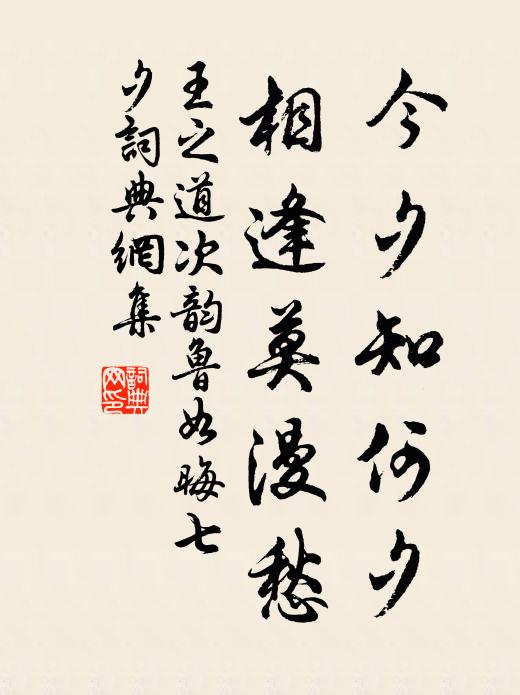 今夕知何夕
相逢莫漫愁
王之道次韵鲁如晦七
夕詞典網集
詞典
网印